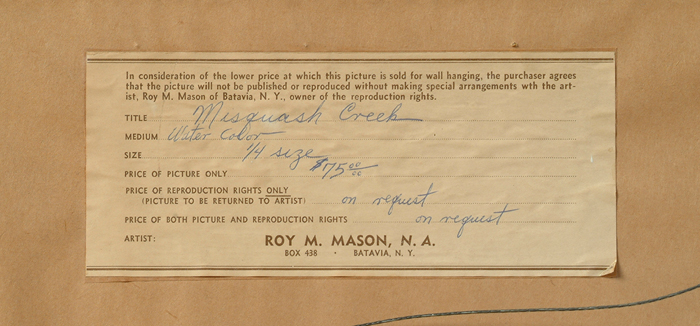 In consideration of the lower price at which this picture is sold for wall hanging, the purchaser agrees
that the picture will not be published or reproduced without making special arrangements wth the art-
ist, Roy M. Mason of Batavia, N. Y., owner of the reproduction rights.
TITLE Misquash Creek
MEDIUM Water Color
SIZE 1/4 size
PRICE OF PICTURE ONLY $75.00
PRICE OF REPRODUCTION RIGHTS ONLY
(PICTURE TO BE RETURNED TO ARTIST) on request
PRICE OF BOTH PICTURE AND REPRODUCTION RIGHTS on request
ARTIST: ROY M. MASON, N. A.
BOX 438 · BATAVIA, N. Y.